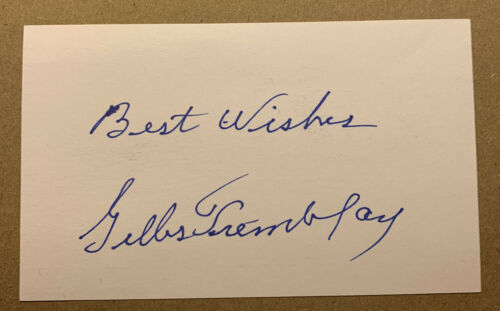 Best Wishes
Gilles Tremblay